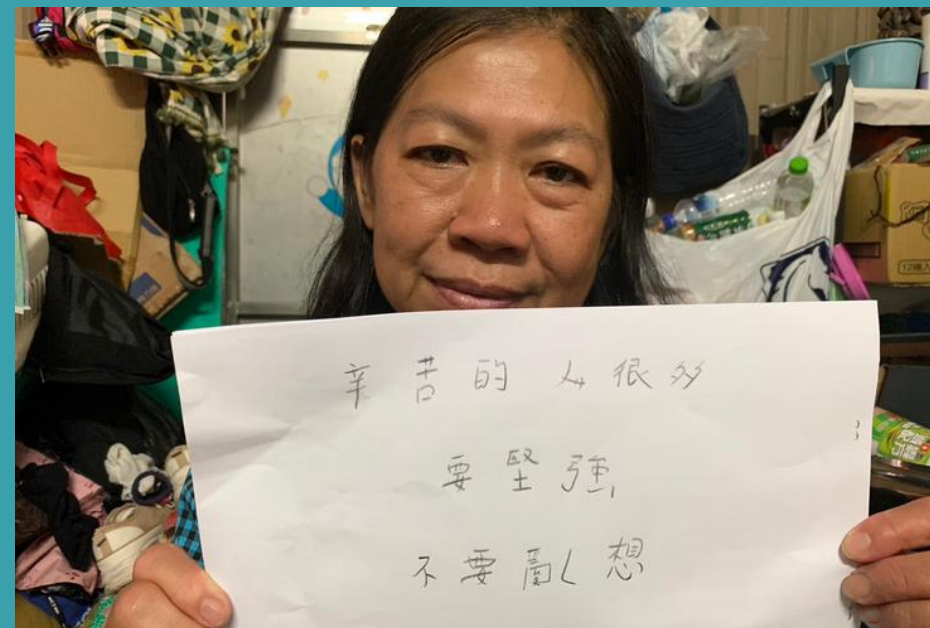 辛苦的人很多
要堅強
不要亂想